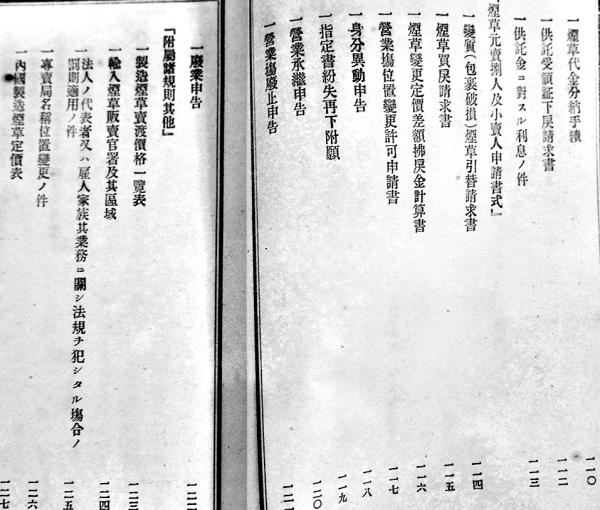 一煙草代金分納手續 一一〇
一供託受領証下戻請求書 一一二
一供託金ニ對スル利息ノ件 一一三
煙草元賣捌人及小賣人申請書式」
一變質(包裹破損)煙草引替請求書 一一四
一煙草買戻請求書 一一五
一煙草變更定價差額拂戻金計算書 一一六
一營業塲位置變更許可申請書 一一七
一身分異動申告 一一八
一指定書紛失再下附願 一一九
一營業承繼申告 一二〇
一營業塲廢止申告 一二一
一廢業申告 一二二
「附屬諸規則其他」
一製造煙草賣渡價格一覽表 一二三
一輸入煙草販賣官署及其區域 一二四
一法人ノ代表者又ハ雇人家族其業務ニ關シ法規ヲ犯シタル塲合ノ
罰則適用ノ件 一二五
一專賣局名稱位置變更ノ件 一二六
一內國製造煙草定價表 一二七